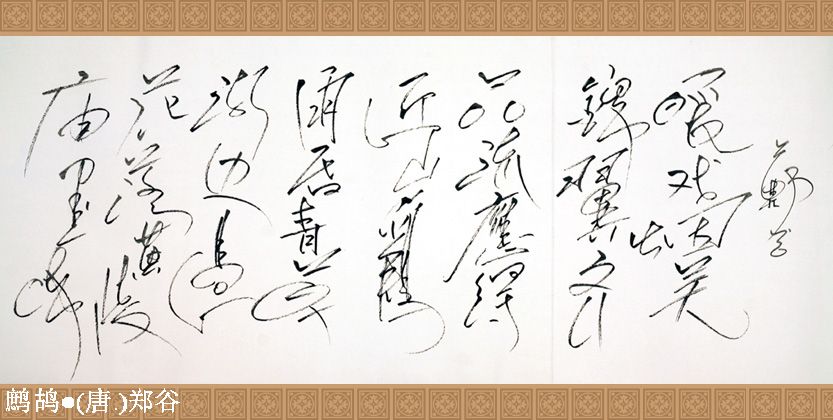 鄭谷
暖戏烟芜
錦翼齐
品流應得
近山鷄
雨昏青草
湖边過
花落黄陵
庙里啼
鹧鸪●(唐.)郑谷